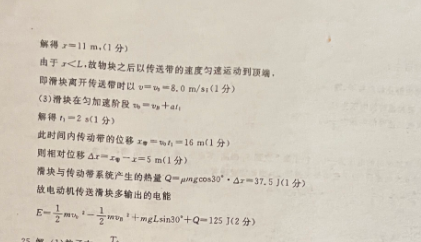 解得 x=11 m,(1分)
由于 x<L,故物块之后以传送带的速度匀速运动到顶端、
即滑块离开传送带时以 v=v₀=8.0 m/s;(1分)
(3)滑块在匀加速阶段 v₀=vB+at₁
解得 t₁=2 s(1分)
此时间内传动带的位移 x带=v₀t₁=16 m(1分)
则相对位移 Δx=x带-x=5 m(1分)
滑块与传动带系统产生的热量 Q=μmgcos30°·Δx=37.5 J(1分)
故电动机传送滑块多输出的电能
E=1/2mv₀²-1/2mvB²+mgLsin30°+Q=125 J(2分)